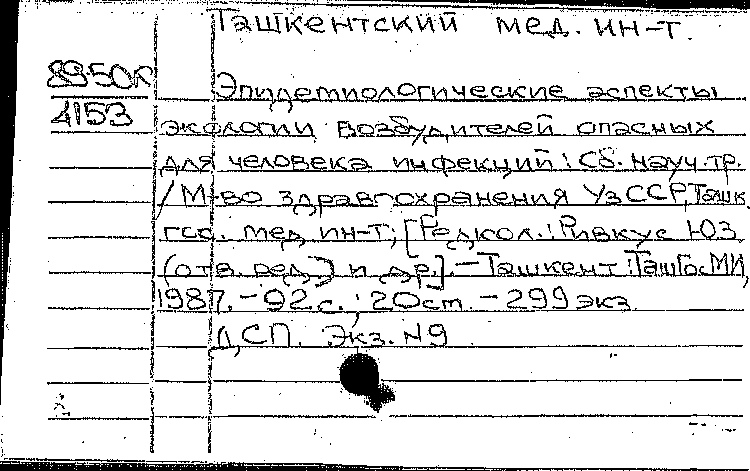 Ташкентский мед. ин-т.
89-50К
4153
Эпидемиологические аспекты
экологии возбудителей опасных
для человека инфекций: Сб. науч. тр.
/М-во здравоохранения УзССР, Ташк.
гос. мед. ин-т; [Редкол.: Ривкус Ю.З.
(отв. ред.) и др.]. - Ташкент: ТашГосМИ,
1987. - 92 с.; 20 ст. - 299 экз.
ДСП. Экз. N9